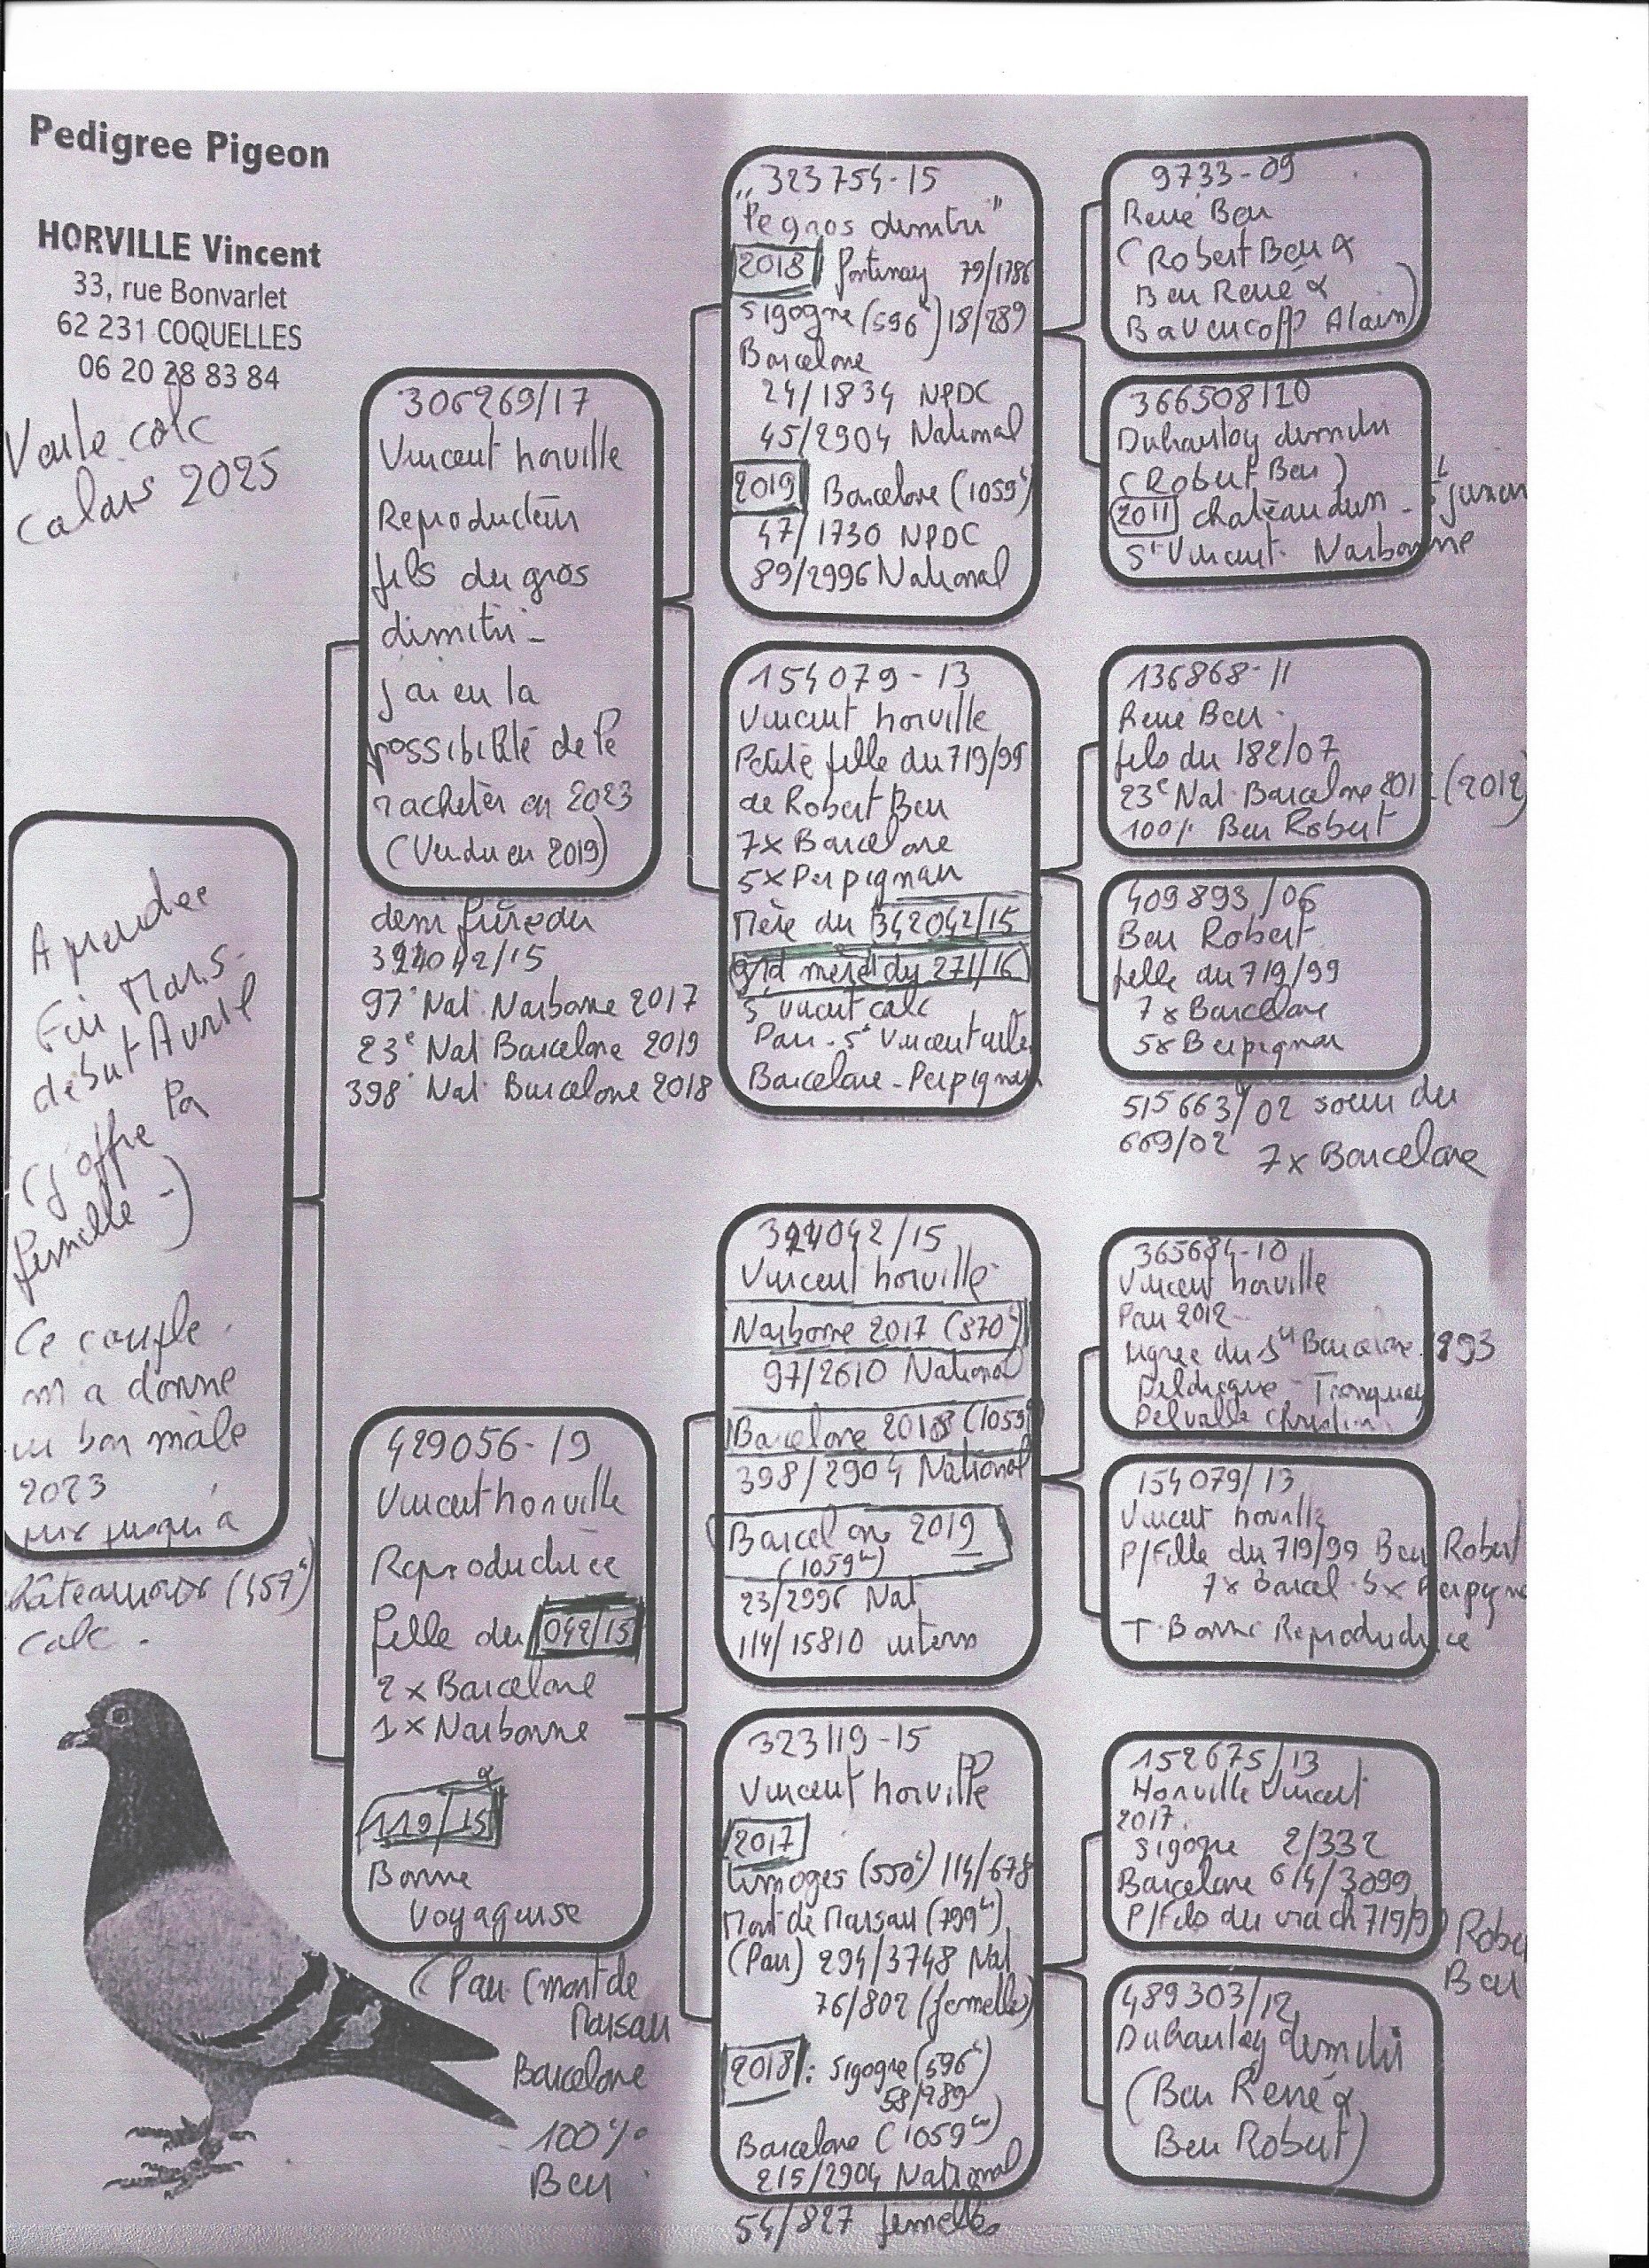 Pedigree Pigeon
HORVILLE Vincent
33, rue Bonvarlet
62 231 COQUELLES
06 20 28 83 84
Vente colc
Calais 2025
A prendre
Fin Mars -
début Avril
(j'offre la
femelle -)
Ce couple
m a donné
un bon mâle
2023
mis jusqu'à
Châteauroux (457 k)
Calc .
306269/17
Vincent horville
Reproducteur
fils du gros
dimitri -
j'ai eu la
possibilité de le
racheter en 2023
(Vendu en 2019)
demi frère du
324042/15
97e Nat. Narbonne 2017
23e Nat Barcelone 2019
398e Nat. Barcelone 2018
429056-19
Vincent horville
Reproductrice
fille du 042/15
2 x Barcelone
1 x Narbonne
&
119/15
Bonne
Voyageuse
(Pau (mont de
Marsan
Barcelone
100%
Ben
323754-15
"le gros dimitri"
2018 fontenay 79/1786
Sigogne (596k) 18/289
Barcelone
24/1834 NPDC
45/2904 National
2019 Barcelone (1059k)
47/1730 NPDC
89/2996 National
154079-13
Vincent horville
Petite fille du 719/99
de Robert Ben
7x Barcelone
5x Perpignan
Mère du 342042/15
grd mère du 271/16
St Vincent calc
Pau - St Vincent
Barcelone - Perpignan
324042/15
Vincent horville
Narbonne 2017 (870k)
97/2610 National
Barcelone 2018 (1059k)
398/2904 National
Barcelone 2019
(1059k)
23/2996 Nat
114/15810 intern
323119-15
Vincent horville
2017
limoges (550k) 114/678
Mont de Marsan (799k)
(Pau) 294/3748 Nat
76/802 (femelles)
2018: Sigogne (596k)
58/289
Barcelone (1059km)
215/2904 National
54/827 femelles
9733-09
René Ben
(Robert Ben &
Ben René &
Bavencoff Alain)
366508/10
Duhautoy dimitri
(Robert Ben)
2011 chateaudun -
St Vincent - Narbonne
136868-11
René Ben -
fils du 182/07
23e Nat Barcelone 201 (2012)
100% Ben Robert
409893/06
Ben Robert
fille du 719/99
7x Barcelone
5x Perpignan
515663/02 soeur du
669/02 7x Barcelone
365684-10
Vincent horville
Pau 2012
lignée du 5e Barcelone 893
Deldicque - Tronquoy
Delvalle Christian
154079/13
Vincent horville
P/Fille du 719/99 Ben Robert
7x Barcel. 5x Perpigna
T. Bonne Reproductrice
152675/13
Horville Vincent
2017.
Sigogne 2/332
Barcelone 614/3099
P/Fils du crack 719/9 Robe
Ben
489303/12
Duhautoy dimitri
(Ben René &
Ben Robert)